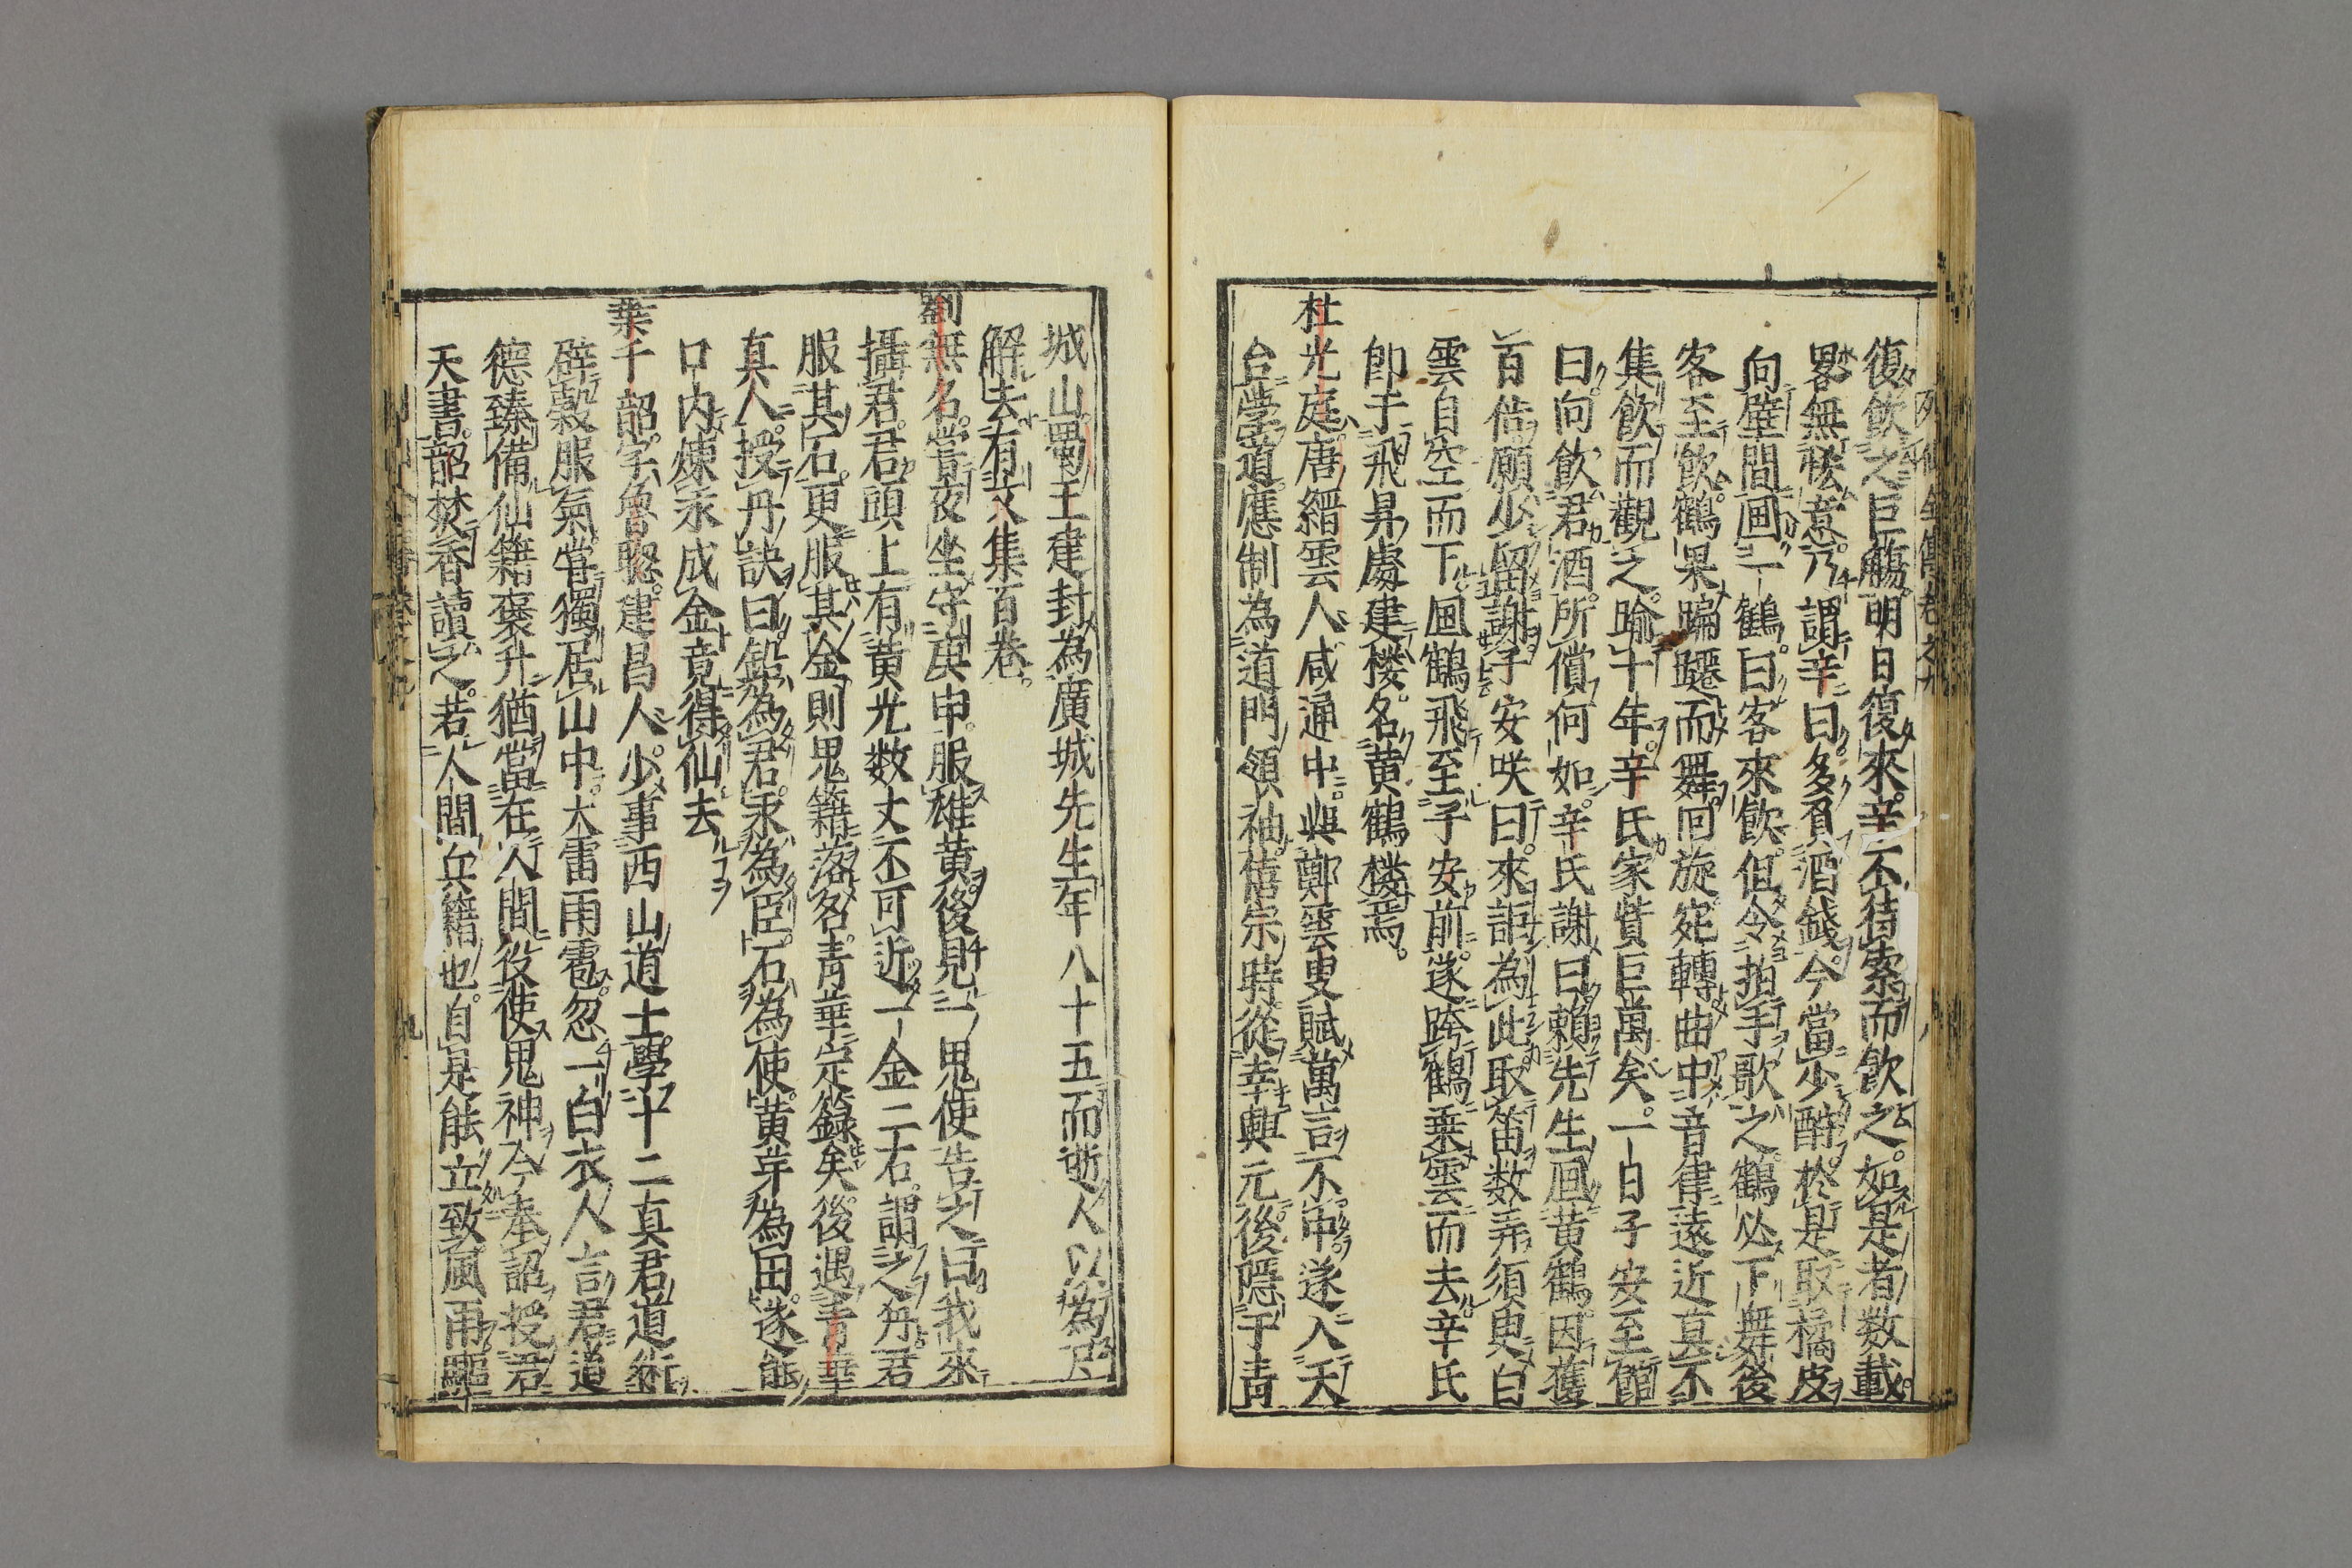 復飲之巨觴明日復來辛不待索而飲之如是者数載
畧無恡意乃謂辛曰多負酒錢今當少酹於是取橘皮
向壁間画一鶴曰客來飲但令拍手歌之鶴必下舞後
客至飲鶴果蹁躚而舞回旋宛轉曲中音律遠近莫不
集飲而觀之踰十年辛氏家貲巨萬矣一日子安至館
曰向飲君酒所償何如辛氏謝曰賴先生画黄鶴因獲
百倍願少留謝子安咲曰來詎為此取笛数弄須臾白
雲自空而下画鶴飛至子安前遂跨鶴乗雲而去辛氏
即于飛昇處建楼名黄鶴楼焉
杜光庭唐縉雲人咸通中與鄭雲叟賦萬言不中遂入天
台學道應制為道門領袖僖宗時從幸興元後隱于青
城山蜀王建封為廣城先生年八十五而逝人以為尸
解去有文集百巻
劉無名嘗夜坐守庚申服雄黄後見一鬼使告之曰我來
攝君君頭上有黄光数丈不可近一金二石謂之丹君
服其石更服其金則鬼籍落名青華定籙矣後遇青華
真人授丹訣曰鉛為君汞為臣石為使黄芽為田遂能
口内煉汞成金竟得仙去
葉千韶字魯聡建昌人少事西山道士學十二真君道術
辟穀服氣嘗獨居山中大雷雨雹忽一白衣人言君道
德臻備仙籍褒升猶當在人間役使鬼神今奉詔授君
天書韶焚香讀之若人間兵籍也自是能立致風雨驅